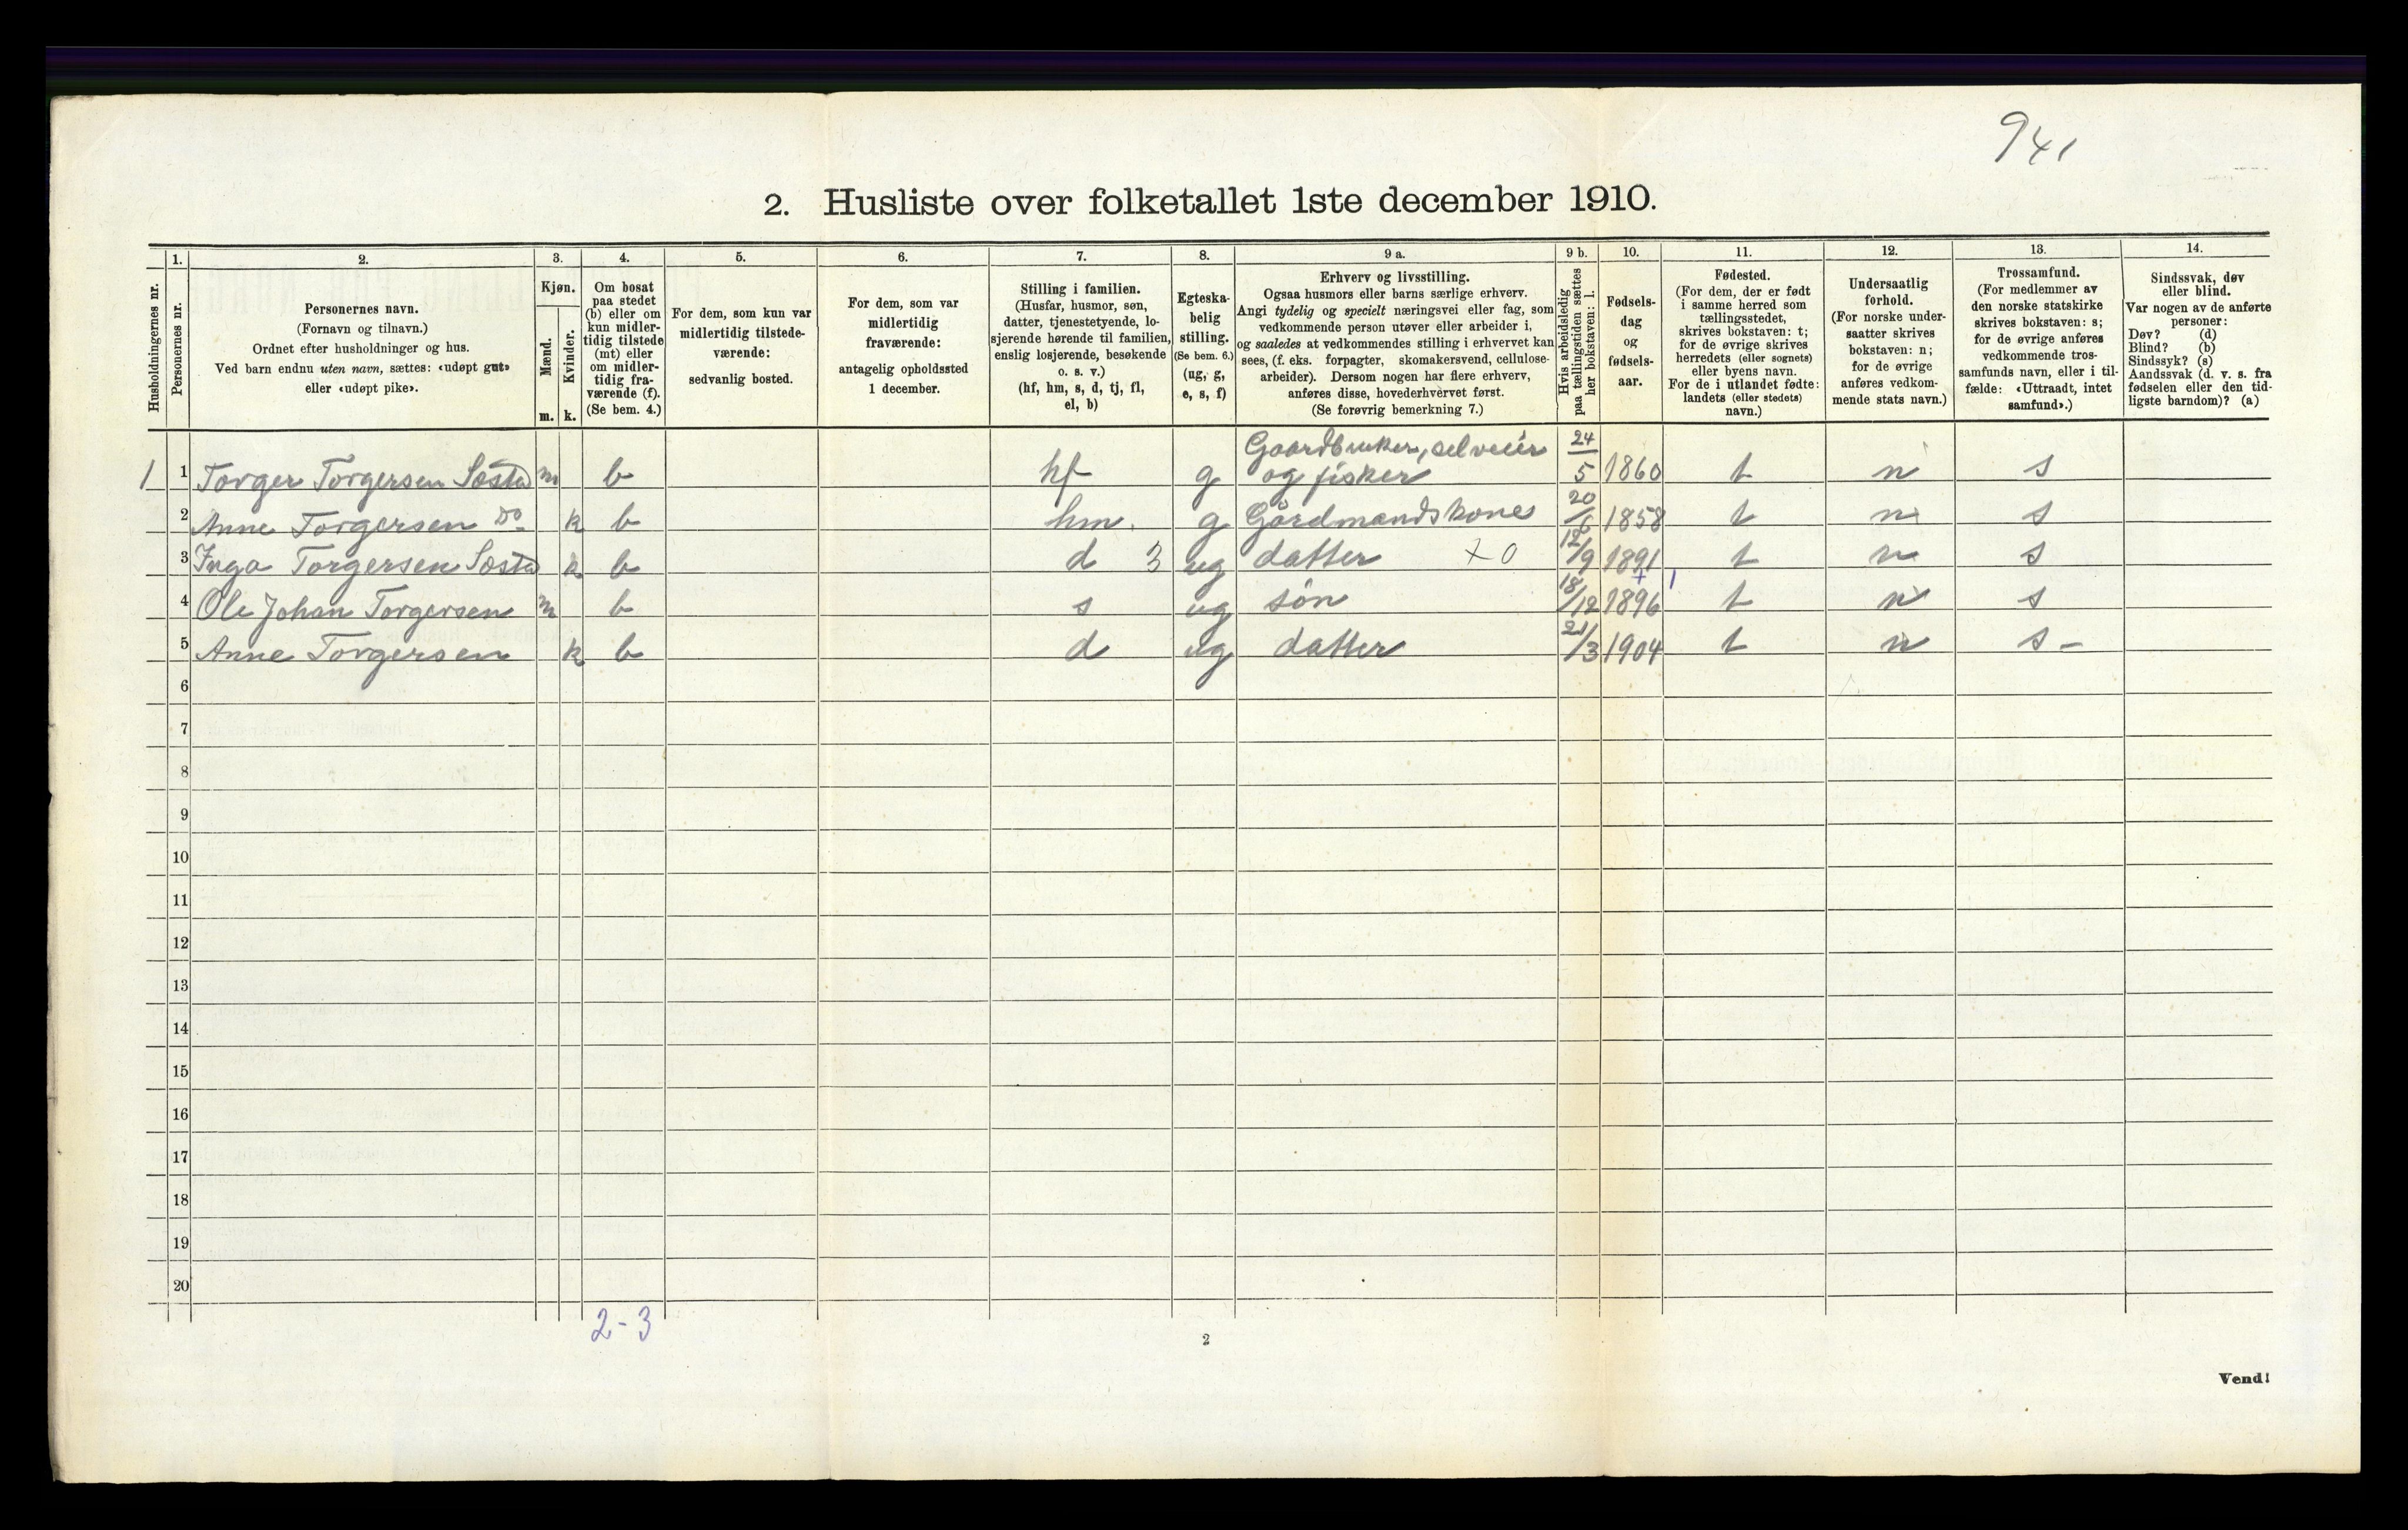 941
2. Husliste over folketallet 1ste december 1910.
Husholdningernes nr.
1.
Personernes nr.
2.
Personernes navn.
(Fornavn og tilnavn.)
Ordnet efter husholdninger og hus.
Ved barn endnu uten navn, sættes: «udøpt gut»
eller «udøpt pike».
3.
Kjøn.
Mænd.
Kvinder.
m. k.
4.
Om bosat
paa stedet
(b) eller om
kun midler-
tidig tilstede
(mt) eller
om midler-
tidig fra-
værende (f).
(Se bem. 4.)
5.
For dem, som kun var
midlertidig tilstede-
værende:
sedvanlig bosted.
6.
For dem, som var
midlertidig
fraværende:
antagelig opholdssted
1 december.
7.
Stilling i familien.
(Husfar, husmor, søn,
datter, tjenestetyende, lo-
sjerende hørende til familien,
enslig losjerende, besøkende
o. s. v.)
(hf, hm, s, d, tj, fl,
el, b)
8.
Egteska-
belig
stilling.
(Se bem. 6.)
(ug, g,
e, s, f)
9 a.
Erhverv og livsstilling.
Ogsaa husmors eller barns særlige erhverv.
Angi tydelig og specielt næringsvei eller fag, som
vedkommende person utøver eller arbeider i,
og saaledes at vedkommendes stilling i erhvervet kan
sees, (f. eks. forpagter, skomakersvend, cellulose-
arbeider). Dersom nogen har flere erhverv,
anføres disse, hovederhvervet først.
(Se forøvrig bemerkning 7.)
9 b.
Hvis arbeidsledig
paa tællingstiden sættes
her bokstaven: l.
10.
Fødsels-
dag
og
fødsels-
aar.
11.
Fødested.
(For dem, der er født
i samme herred som
tællingsstedet,
skrives bokstaven: t;
for de øvrige skrives
herredets (eller sognets)
eller byens navn.
For de i utlandet fødte:
landets (eller stedets)
navn.)
12.
Undersaatlig
forhold.
(For norske under-
saatter skrives
bokstaven: n;
for de øvrige
anføres vedkom-
mende stats navn.)
13.
Trossamfund.
(For medlemmer av
den norske statskirke
skrives bokstaven: s;
for de øvrige anføres
vedkommende tros-
samfunds navn, eller i til-
fælde: «Uttraadt, intet
samfund».)
14.
Sindssvak, døv
eller blind.
Var nogen av de anførte
personer:
Døv? (d)
Blind? (b)
Sindssyk? (s)
Aandssvak (d. v. s. fra
fødselen eller den tid-
ligste barndom)? (a)
1 1 Torger Torgersen Sæsta m b hf g Gaardbruker, selveier og fisker 24/5 1860 t n s
2 Anne Torgersen Do k b hm. g Gårdmandskones 20/6 1858 t n s
3 Inga Torgersen Sæsta k b d 3 ug datter x 0 12/9 1891 t n s
4 Ole Johan Torgersen m b s ug søn 18/12 1896 t n s
5 Anne Torgersen k b d ug datter 21/3 1904 t n s -
6
7
8
9
10
11
12
13
14
15
16
17
18
19
20
2-3
2
Vend!